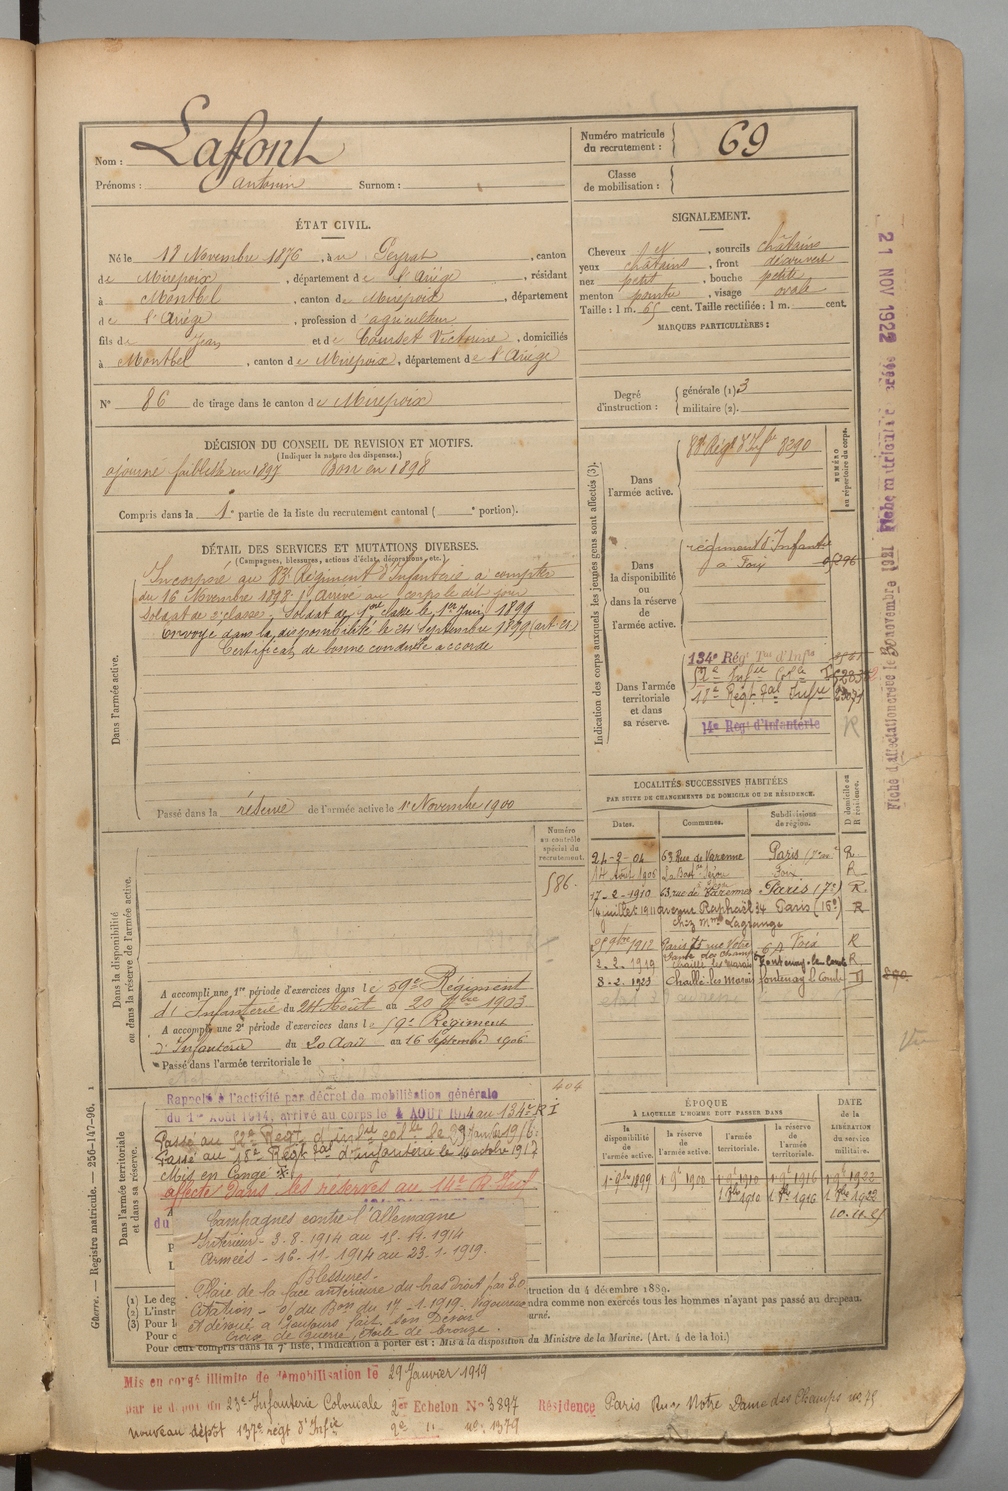 Nom : Laffont
Prénoms : Antonin Surnom :
Numéro matricule du recrutement : 69
Classe de mobilisation :
ÉTAT CIVIL.
Né le 18 Novembre 1876, à Peyrat, canton
de Mirepoix, département de l'Ariège, résidant
à Montbel, canton de Mirepoix, département
de l'Ariège, profession d'agriculteur
fils de Jean et de Courset Victorine, domiciliés
à Montbel, canton de Mirepoix, département de l'Ariège
N° 86 de tirage dans le canton de Mirepoix
SIGNALEMENT.
Cheveux et, sourcils châtains
yeux châtains, front découvert
nez petit, bouche petite
menton pointu, visage ovale
Taille : 1 m. 65 cent. Taille rectifiée : 1 m. cent.
MARQUES PARTICULIÈRES :
Degré d'instruction : générale (1) 3
militaire (2).
DÉCISION DU CONSEIL DE REVISION ET MOTIFS.
(Indiquer la nature des dispenses.)
ajourné faiblesse en 1897 Bon en 1898
Compris dans la 1e partie de la liste du recrutement cantonal ( e portion).
DÉTAIL DES SERVICES ET MUTATIONS DIVERSES.
(Campagnes, blessures, actions d'éclat, décorations, etc.)
Dans l'armée active.
Incorporé au 83e Régiment d'Infanterie à compter
du 16 Novembre 1898. Arrivé au corps le dit jour
soldat de 2e classe. Soldat de 1ère classe le 1er Juin 1899
Envoyé dans la disponibilité le 24 Septembre 1899 (art. 21)
Certificat de bonne conduite accordé
Passé dans la réserve de l'armée active le 1er Novembre 1900
Indication des corps auxquels les jeunes gens sont affectés (3).
NUMÉRO au répertoire du corps.
Dans l'armée active.
83e Régt d'Infie 3290
Dans la disponibilité ou dans la réserve de l'armée active.
régiment d'Infantie
à Foix
Dans l'armée territoriale et dans sa réserve.
134e Rég Tal d'Infie
52e Infie Colle
18e Régt Tal Infie
14e Reg d'Infanterie R
LOCALITÉS SUCCESSIVES HABITÉES
PAR SUITE DE CHANGEMENTS DE DOMICILE OU DE RÉSIDENCE.
Dates. Communes. Subdivisions de région. D domicile ou R résidence.
24-2-04 63 Rue de Varenne Paris (7me) R
14 Août 1906 Foix R
17-2-1910 63 rue de Varennes Paris (7e) R
14 juillet 1911 avenue Raphaël 34 Paris (16e) R
chez Mme Lagrange
9bre 1912 Paris 75 rue Notre Dame des Champs Foix R
2.2.1919 Chaillé les Marais Fontenay-le-Comte R
3-2.1923 Chaillé-les-Marais fontenay le Comte D
Dans la disponibilité ou dans la réserve de l'armée active.
Numéro au contrôle spécial du recrutement.
586.
A accompli une 1re période d'exercices dans le 59e Régiment
d'Infanterie du 24 Août au 20 7bre 1903
A accompli une 2e période d'exercices dans le 59e Régiment
d'Infanterie du 20 Août au 16 Septembre 1906
Passé dans l'armée territoriale le
Dans l'armée territoriale et dans sa réserve.
404
Rappelé à l'activité par décret de mobilisation générale
du 1er Août 1914, arrivé au corps le 4 AOUT 1914 au 134e R I
Passé au 52e Regt d'infie colle le 29 Janvier 1916.
Passé au 18e Régt Tal d'infanterie le 14 octobre 1917
Mis en Congé
affecté dans les réserves au 14e R Inf
du
Campagnes contre l'Allemagne
Intérieur - 3.8.1914 au 15.11.1914
Armées - 16.11.1914 au 23.1.1919.
Blessures -
Plaie de la face antérieure du bras droit par E.O
Citation - O/ du Bon du 17-1-1919. Vigoureux
et dévoué, a toujours fait son Devoir
Croix de Guerre, étoile de bronze.
ÉPOQUE
À LAQUELLE L'HOMME DOIT PASSER DANS
la disponibilité de l'armée active. la réserve de l'armée active. l'armée territoriale. la réserve de l'armée territoriale.
DATE de la LIBÉRATION du service militaire.
1 9bre 1899 1 9e 1900 1 9e 1910 1 9e 1916 1 9e 1922
1 8bre 1910 1 8bre 1916 1 8bre 1922
10.11.21
(1) Le deg
(2) L'instr
(3) Pour l
Pour c
struction du 4 décembre 1889.
ndra comme non exercés tous les hommes n'ayant pas passé au drapeau.
ourné.
Pour ceux compris dans la 7e liste, l'indication à porter est : Mis à la disposition du Ministre de la Marine. (Art. 4 de la loi.)
Mis en congé illimité de démobilisation le 29 Janvier 1919
par le dépôt du 23e Infanterie Coloniale 2er Echelon N° 3897 Résidence Paris Rue Notre Dame des Champs no 75
nouveau dépôt 137e régt d'Infie 2e " no: 1379
Guerre. — Registre matricule. — 256-147-96.
21 NOV 1922
Fiche d'affectation créée le 30 novembre 1921 Fiche matricule créée